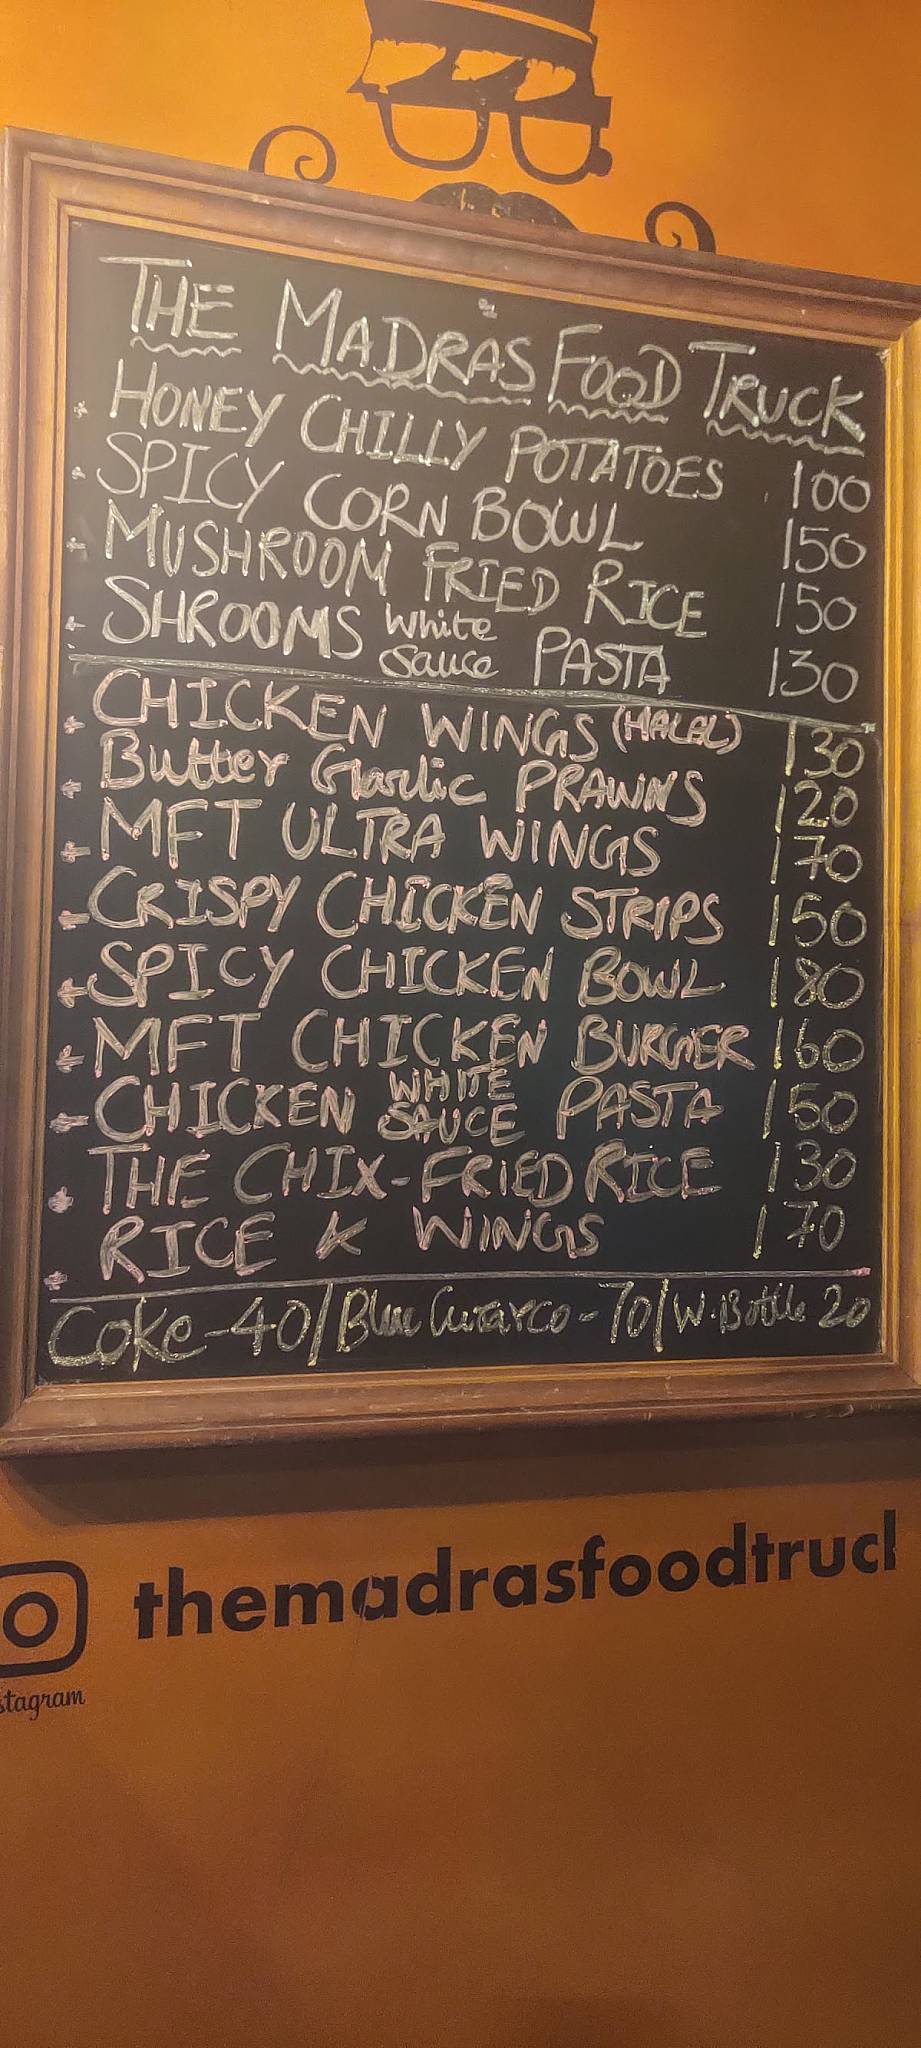 THE MADRAS FOOD TRUCK
HONEY CHILLY POTATOES 100
SPICY CORN BOWL 150
MUSHROOM FRIED RICE 150
SHROOMS White Sauce PASTA 130
CHICKEN WINGS (HALAL) 130
Butter Garlic PRAWNS 120
MFT ULTRA WINGS 170
CRISPY CHICKEN STRIPS 150
SPICY CHICKEN BOWL 180
MFT CHICKEN BURGER 160
CHICKEN WHITE SAUCE PASTA 150
THE CHIX-FRIED RICE 130
RICE & WINGS 170
Coke-40/Blue Curacco-70/W.Bottle 20
themadrasfoodtruck
stagram